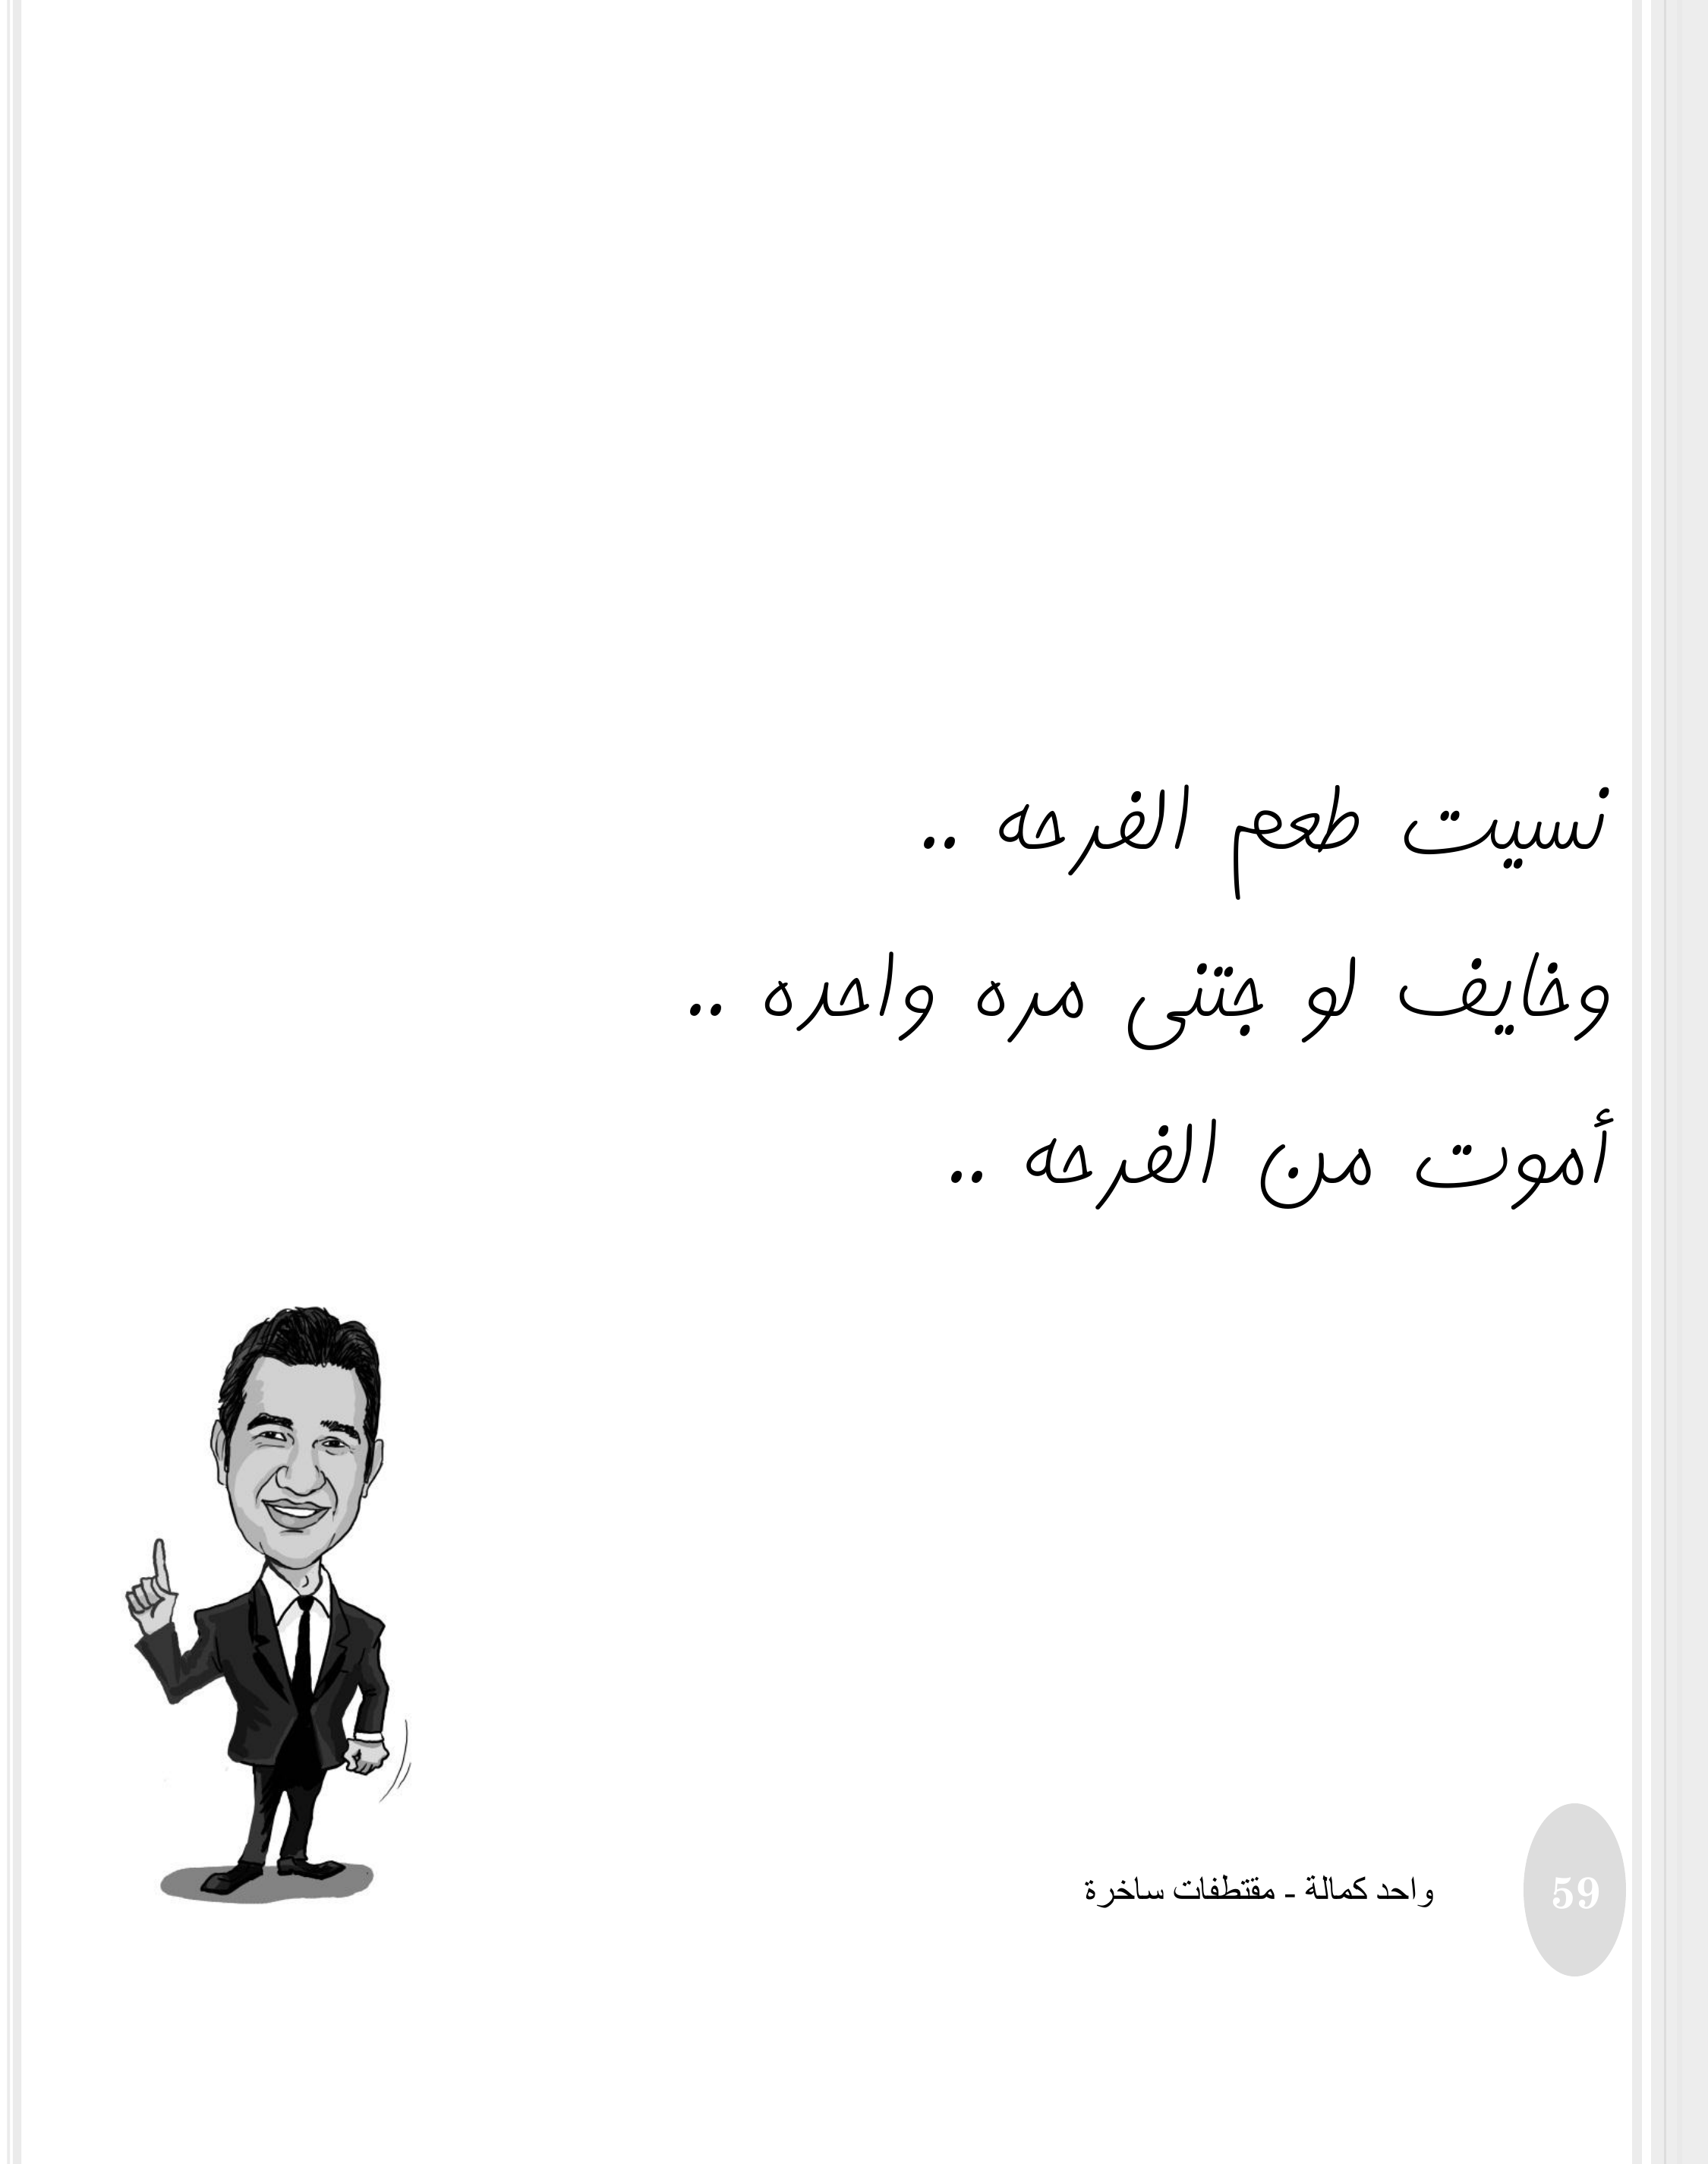 نسيت طعم الفرحه ..
وخايف لو جتنى مره واحده ..
أموت من الفرحه ..
واحد كمالة - مقتطفات ساخرة
59